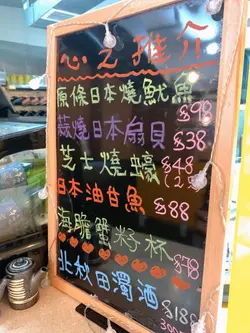 心之推介
原條日本燒魷魚 $98
蒜燒日本扇貝 $38
芝士燒蠔 $48
日本油甘魚 $88
海膽蟹籽杯 $78
北秋田濁酒
$188